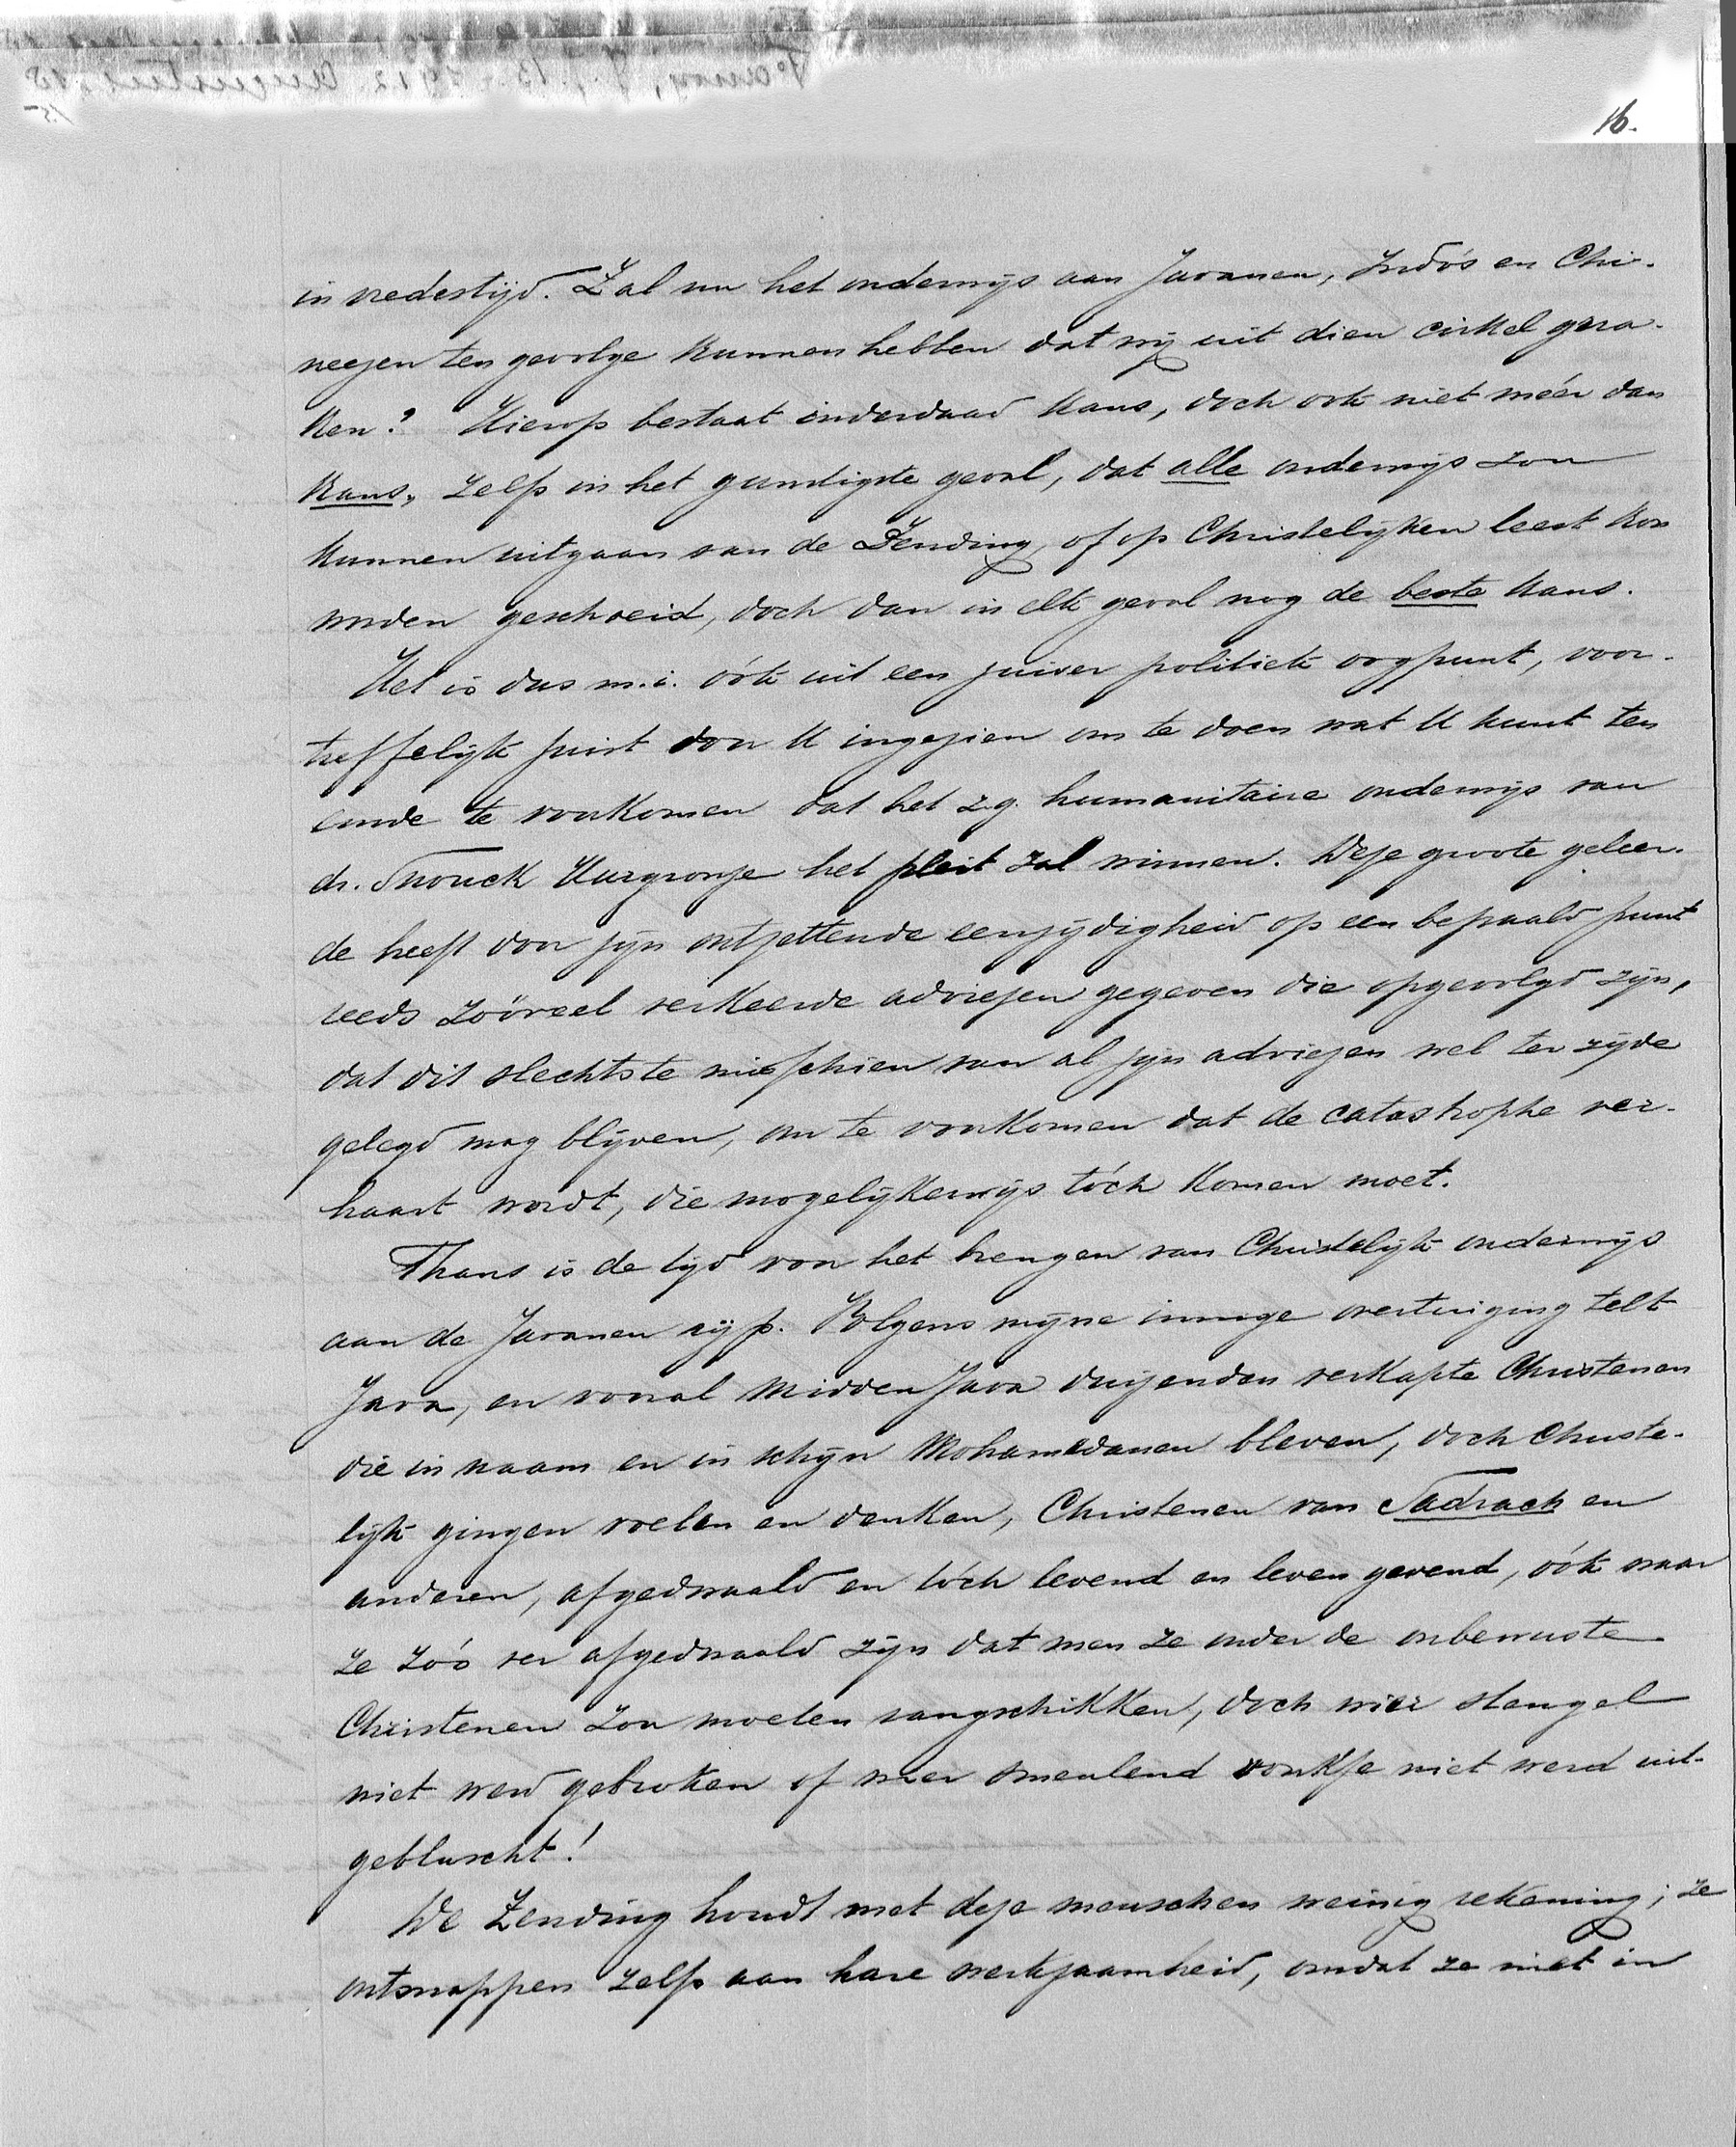 16.
in vredestijd. Zal nu het onderwijs aan Javanen, Indo's en Chi-
neezen ten gevolge kunnen hebben dat wij uit dien cirkel gera-
ken? Hierop bestaat inderdaad kans, doch ook niet méér dan
kans, zelfs in het gunstigste geval, dat alle onderwijs zou
kunnen uitgaan van de Zending, of op Christelijken leest kon
worden geschoeid, doch dan in elk geval nog de beste kans.
Het is dus m.i. óók uit een zuiver politiek oogpunt, voor-
treffelijk juist door U ingezien om te doen wat U kunt ten
einde te voorkomen dat het z.g. humanitaire onderwijs van
dr. Snouck Hurgronje het pleit zal winnen. Deze groote geleer-
de heeft door zijn ontzettende eenzijdigheid op een bepaald punt
reeds zóóveel verkeerde adviezen gegeven die opgevolgd zijn,
dat dit slechtste misschien van al zijn adviezen wel ter zijde
gelegd mag blijven, om te voorkomen dat de catastrophe ver-
haast wordt, die mogelijkerwijs tóch komen moet.
Thans is de tijd voor het brengen van Christelijk onderwijs
aan de Javanen rijp. Volgens mijne innige overtuiging telt
Java, en vooral Midden Java duizenden verkapte Christenen
die in naam en in schijn Mohamedanen bleven, doch Christe-
lijk gingen voelen en denken, Christenen van Sadrach en
anderen, afgedwaald en tóch levend en leven gevend, óók waar
ze zóó ver afgedwaald zijn dat men ze onder de onbewuste
Christenen zou moeten rangschikken, doch wier stengel
niet werd gebroken of wier smeulend vonkje niet werd uit-
gebluscht!
De Zending houdt met deze menschen weinig rekening; ze
ontsnappen zelfs aan hare werkzaamheid, omdat ze niet in